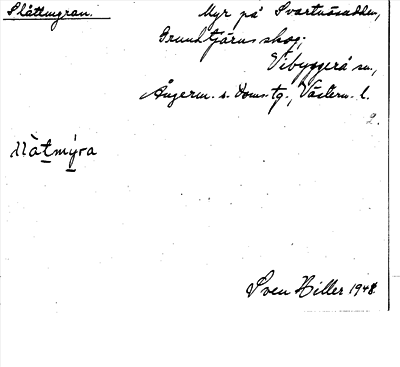 Slåttmyran.
Myr på Svartnäsudden,
Grundtjärns skog,
Vibyggerå sn,
Ångerm. s. Domstg., Västern. l.
2.
slåtmýra
Sven Hiller 1948